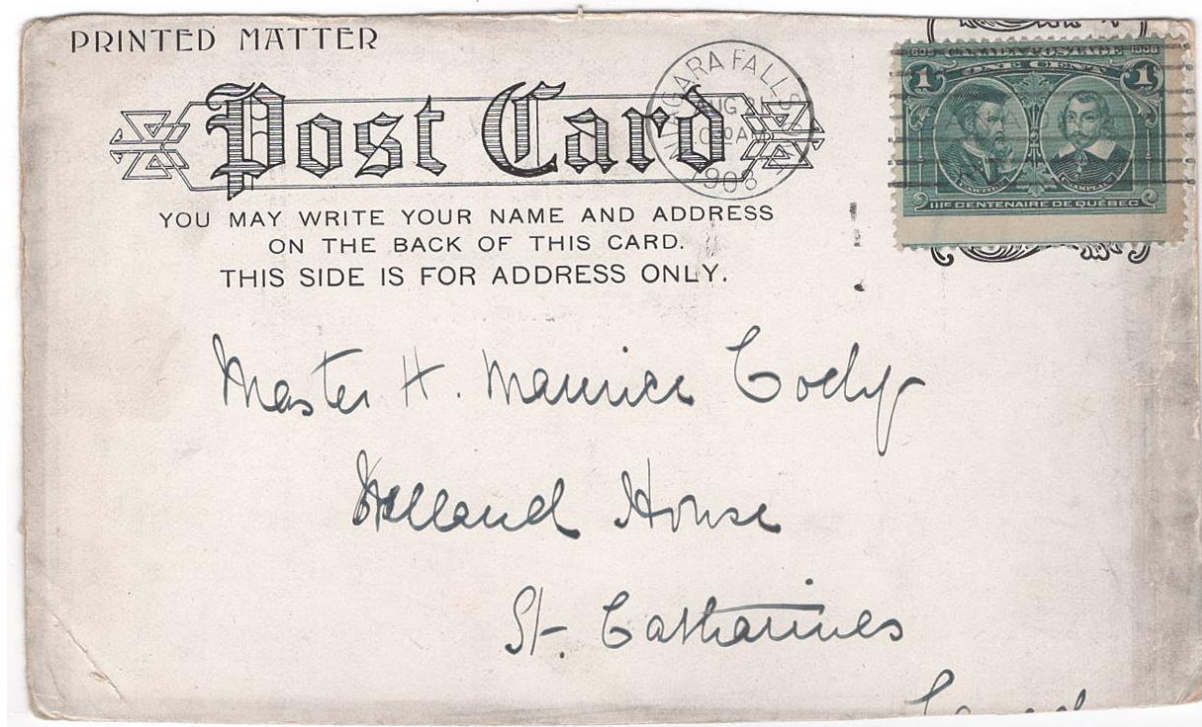 PRINTED MATTER
Post Card
YOU MAY WRITE YOUR NAME AND ADDRESS
ON THE BACK OF THIS CARD.
THIS SIDE IS FOR ADDRESS ONLY.
NIAGARA FALLS
AUG
1908
CANADA POSTAGE 1908
1 ONE CENT 1
CARTIER
IIIE CENTENAIRE DE QUÉBEC
Master H. Maurice Cody
Welland House
St. Catharines